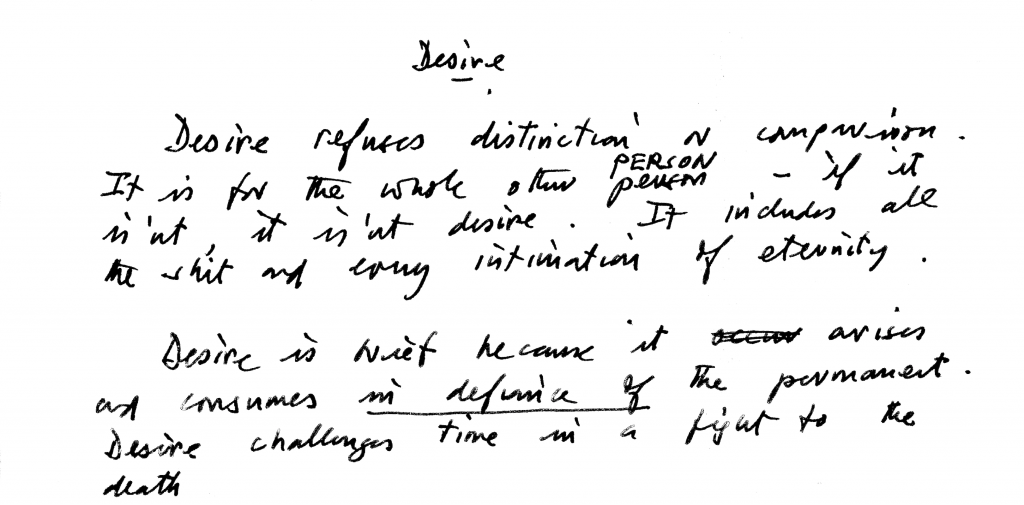 Desire
Desire refuses distinction or comparison.
PERSON
It is for the whole other person – if it
is'nt, it is'nt desire. It includes all
the shit and every intimation of eternity.
Desire is brief because it occur arises
and consumes in defiance of the permanent.
Desire challenges time in a fight to the
death